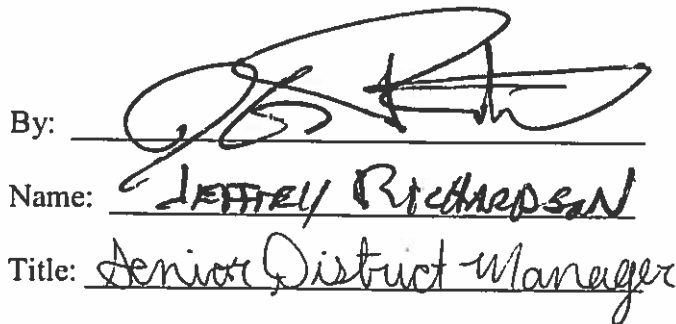 By:
Name: JEFFREY RICHARDSON
Title: Senior District Manager